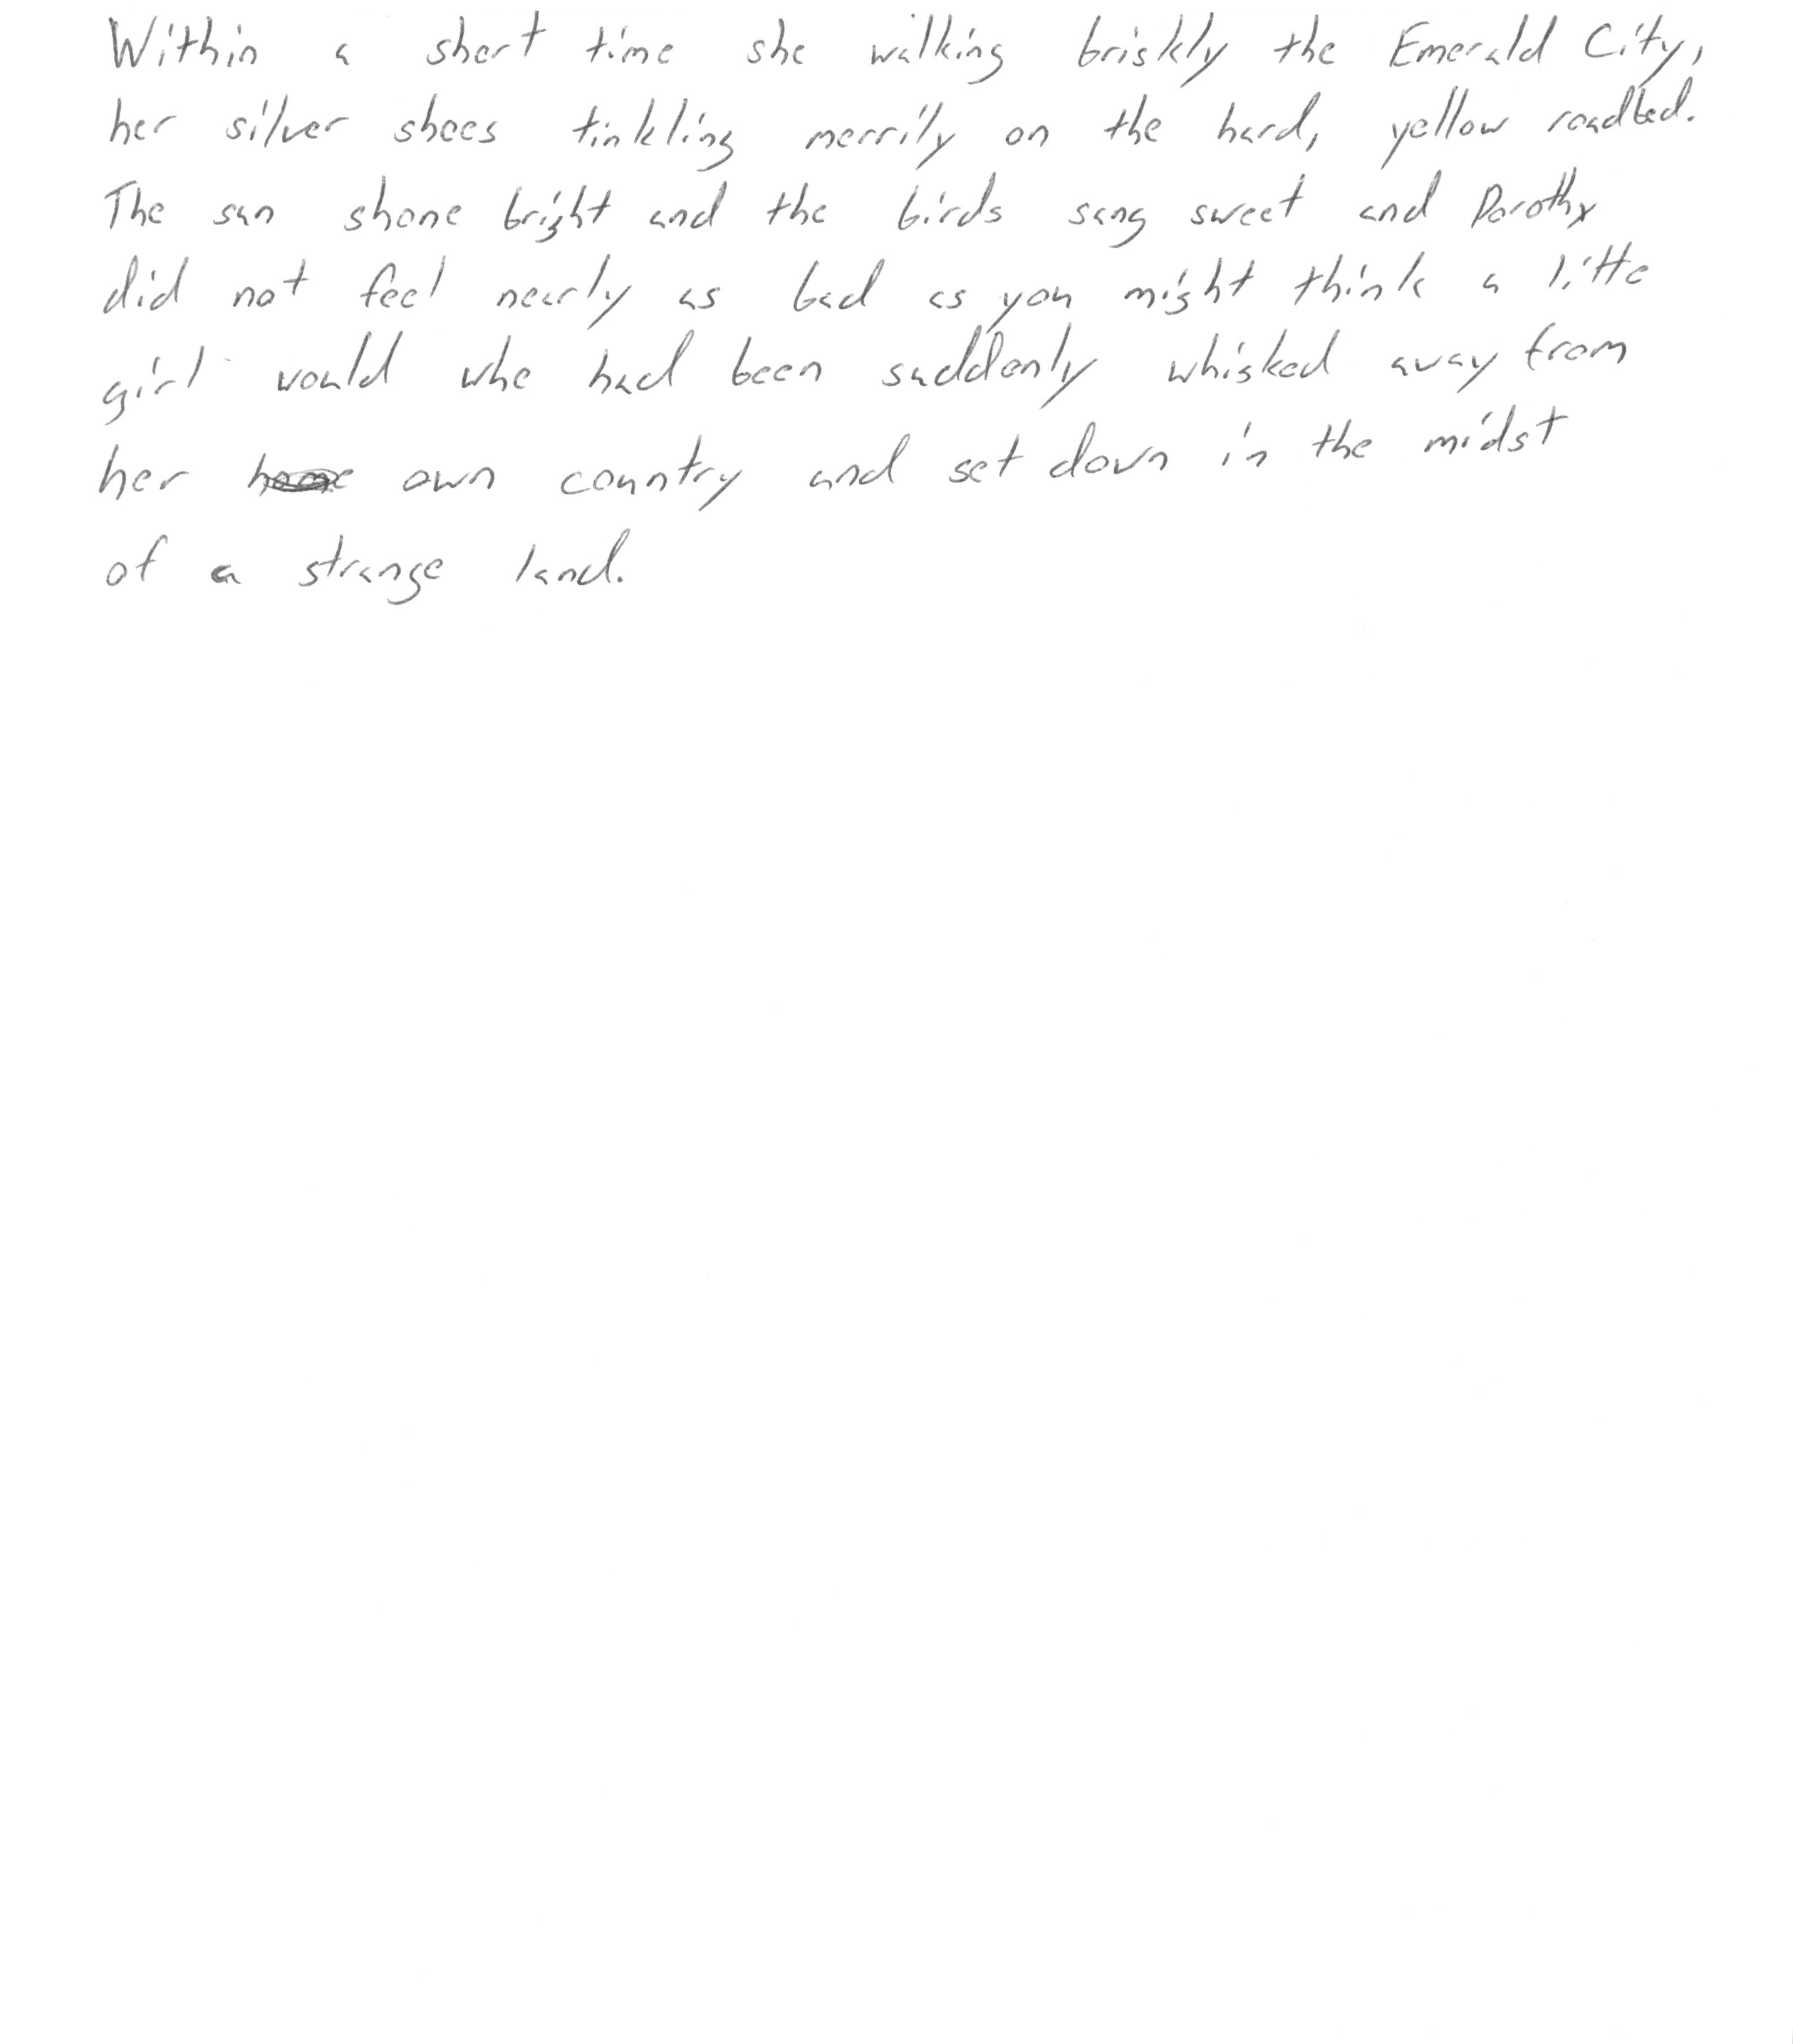 Within a short time she walking briskly the Emerald City,
her silver shoes tinkling merrily on the hard, yellow roadbed.
The sun shone bright and the birds sang sweet and Dorothy
did not feel nearly as bad as you might think a little
girl would who had been suddenly whisked away from
her own country and set down in the midst
of a strange land.